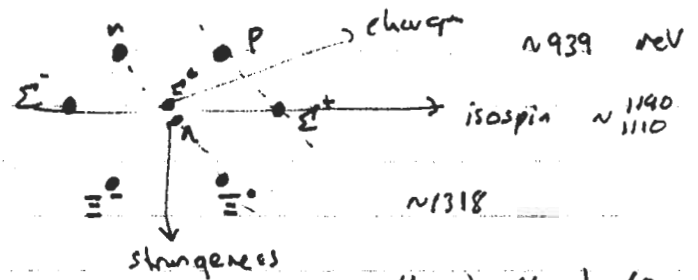 n p charge ~939 MeV
Σ⁻ Σ⁰ Σ⁺ isospin ~ 1190
Λ 1110
Ξ⁻ Ξ⁰ ~1318
strangeness